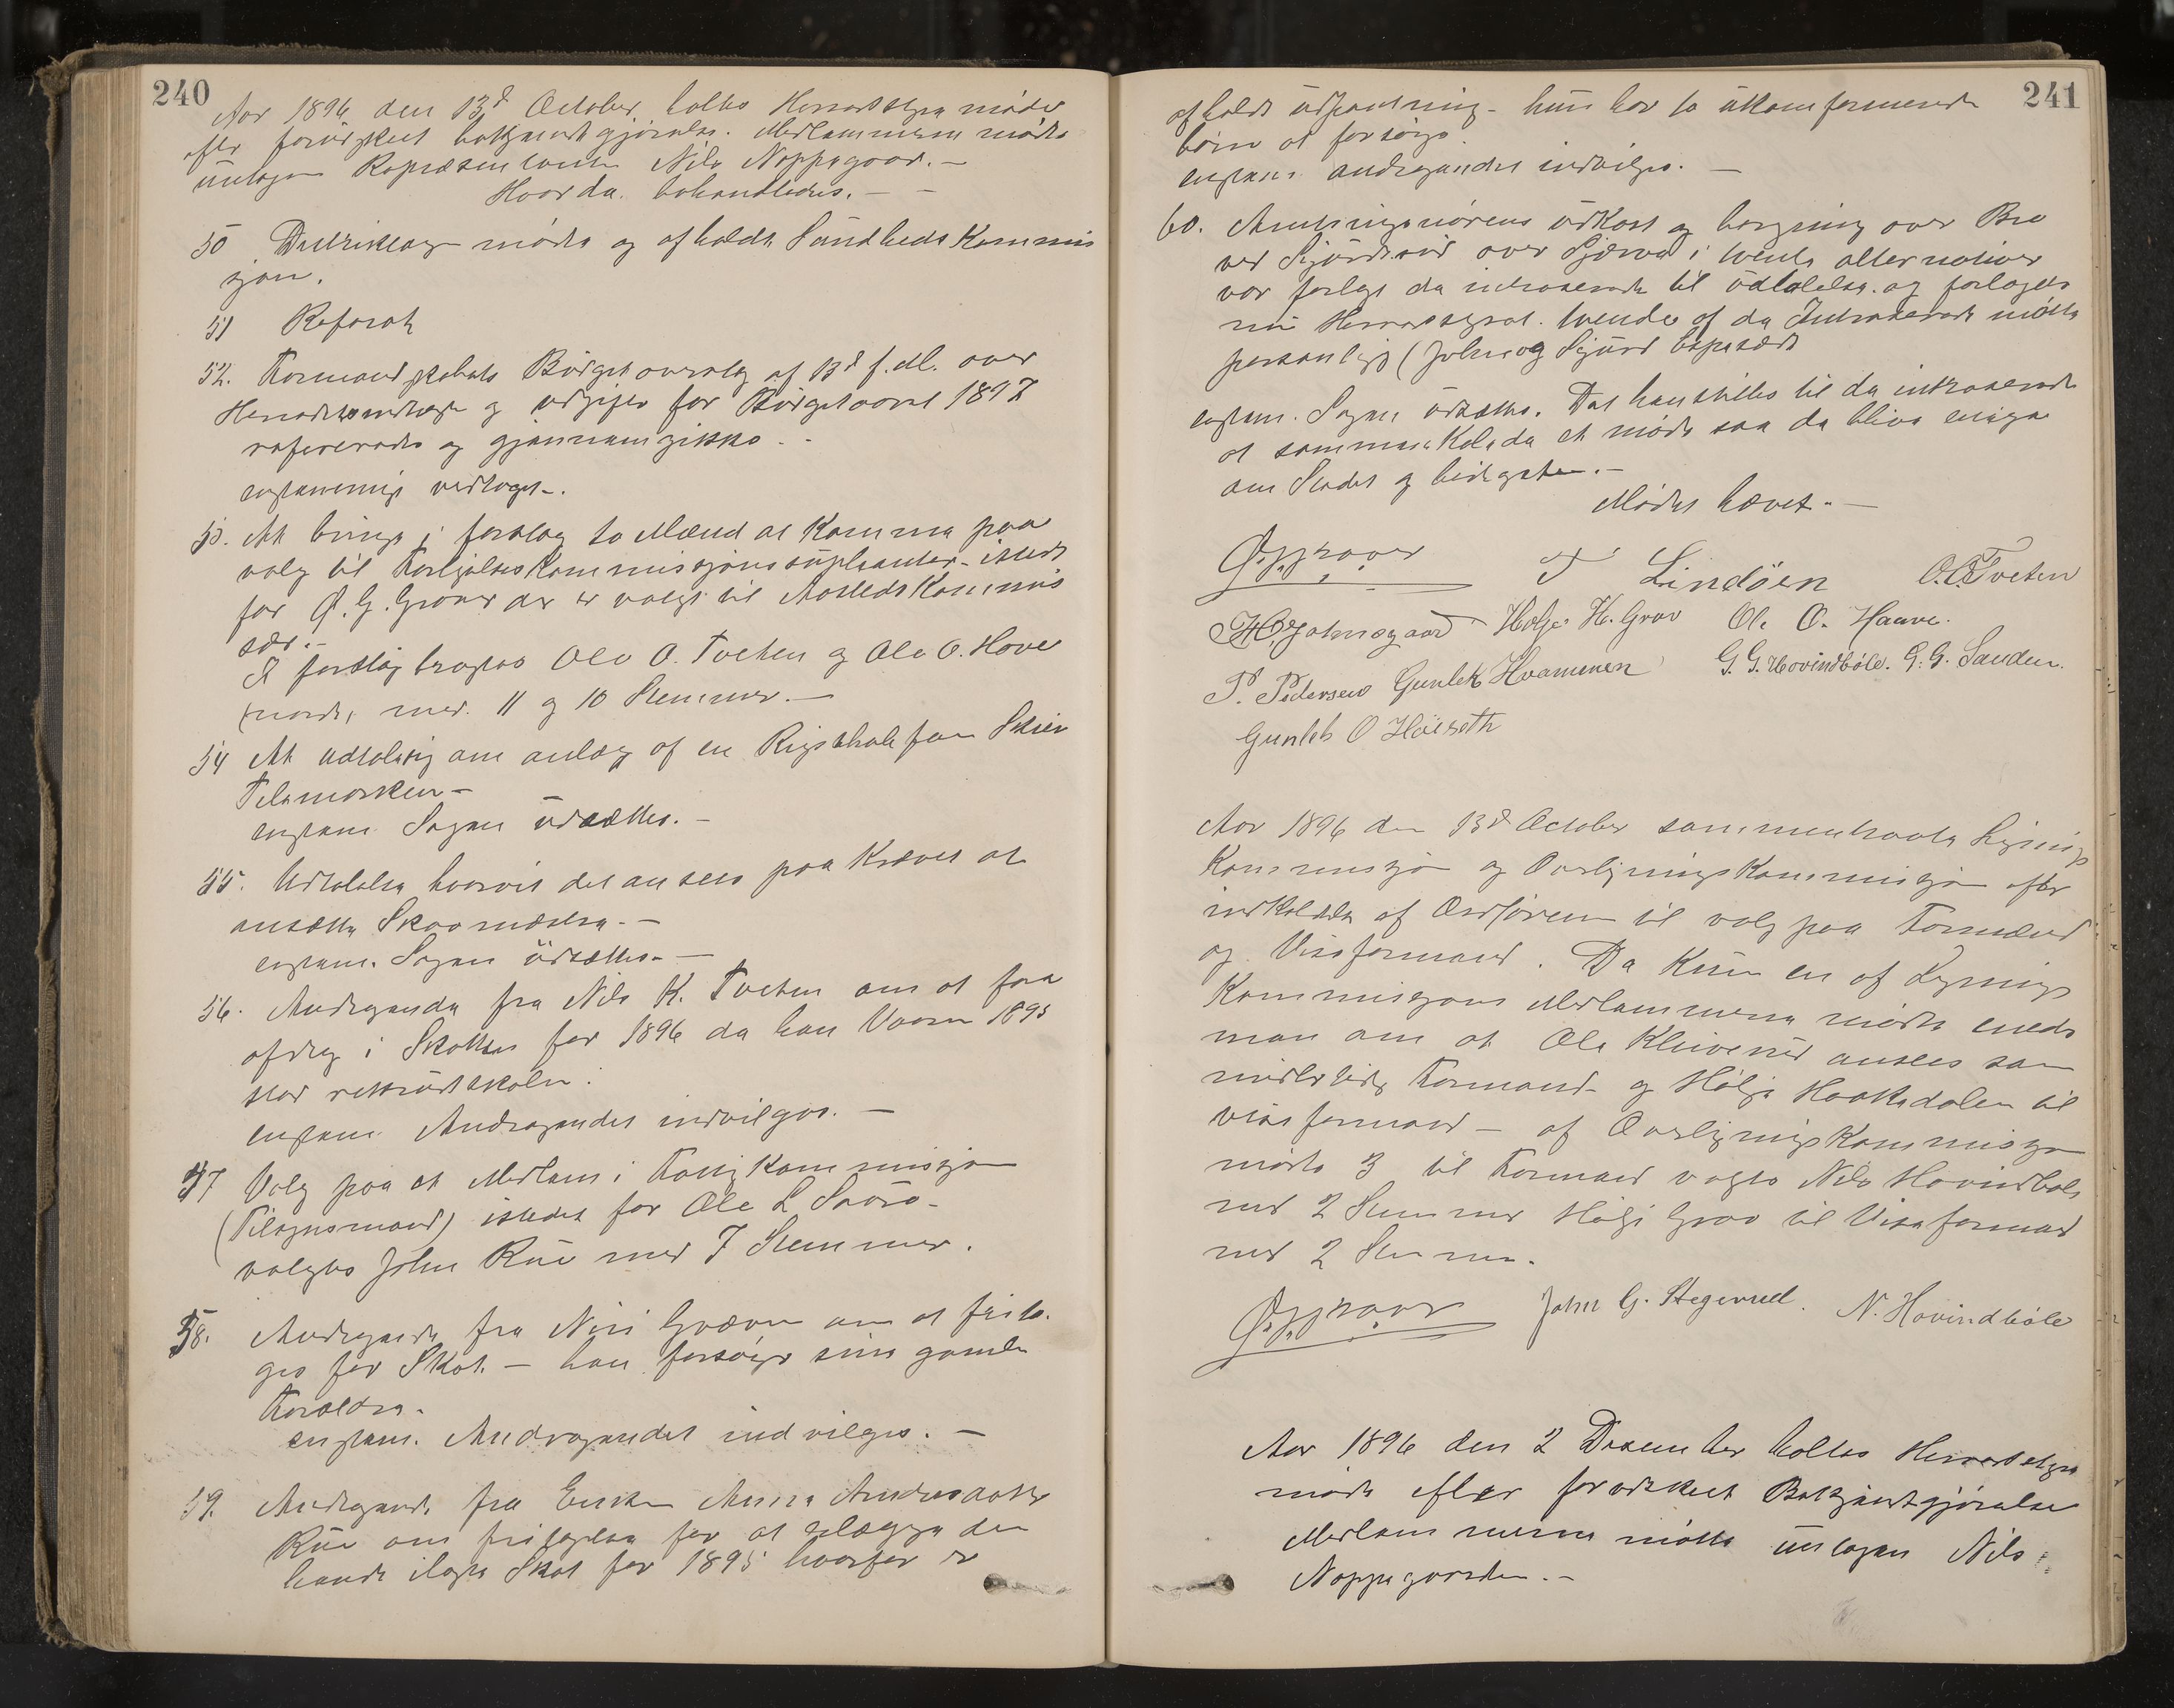 240
Aar 1896 den 13d October holtes Herredsstyremøde
efter forudskeet bekjendtgjørelse. Medlemmerne mødte
untagen Repræsentanten Nils Noppegaard. —
Hvor da behandledes. — —
50 Distriktslæge mødte og afholdt Sundheds Kommis
sjon.
51 Referat
52. Formandskabets Budgetoverslag af 13d f. M. over
Herredets indtægter og udgifter for Budgetaaret 1897
refereredes og gjennemgikkes. -
enstemmig vedtaget. -
53. At bringe i forslag to Mænd at Komme paa
valg til Forligelseskommissjonssupleanter - istedet
for Ø. G. Graver der er valgt til Aasteds Kommis
sær. -
I forslag bragtes Ole O. Tveten og Ole O. Hove
med 11 og 10 Stemmer. —
54 At udtale sig om anlæg af en Rugsthale fra Skien
Telemarken —
enstem. Sagen udsættes. —
55. Udtalelse hvorvit det ansees paa Krævet at
ansætte Skovmæstre. —
enstem. Sagen udsættes. —
56. Andragende fra Nils K. Tveten om at faa
afdrag i Skatten for 1896 da han Vaaren 1895
enstem. Andragendet indvilges. —
57 Valg paa et Medlem i Fattigkommissjon
(Tilsynsmand) istedet for Ole L
valgtes John Rue med 7 Stemmer.
58. Andragende fra om at frita-
ges for Skat. — han forsørger sine gamle
Forældre.
enstem. Andragendet indvilges. —
59. Andragende fra Enken Anne Andersdatter
Rue om fritagelse for at udlægge den
hende ilagte Skat for 1895 hvorfor er
241
afholdt udpantning - hun har to ukonfirmerede
børn at forsørge.
enstem. andragendet indvilges. —
60. Amtsingeniørens udkast og beregning over Bro
ved over i tvende alternativer
var forlagt de interesserede til udtalelse og forlagdes
nu Herredsstyret. tvende af de Interesserede mødte
personligt (John og Sjurd
enstem. Sagen udsættes. Det henstilles til de interesserede
at sammenkalde et møde saa de blive enige
om Stedet og bidragets. —
Mødet hævet. —
Ø. G. Graver T Lindöen O. O. Tveten
H. O. Johnsgaard Helge H. Grav Ole O. Haave.
P. Pedersen Gunlek Hvammen G. G. Hovindbøle. G. G. Sanden.
Gunleh O Höiseth
Aar 1896 den 13d October sammentraate Lignings
Kommissjon og Overligningskommissjon efter
indkaldelse af Ordføreren til valg paa Formænd
og Viseformænd. Da Kun en af Lignings
Kommissjons Medlemmerne mødte enedes
man om at Ole Kleiverud ansees som
midlertidig Formand og Helje Haatadalen til
viseformand — af Overligningskommissjon
mødte 3 til Formand valgtes Nils Hovindbøle
med 2 Stemmer Helje Grav til Viseformand
med 2 Stemmer.
Ø. G. Graver John G. Stegerud. N. Hovindbøle
Aar 1896 den 2 Desember holtes Herredsstyre
møde efter forudskeet Bekjendtgjørelse
Medlemmerne mødte untagen Nils
Noppegaarden. —